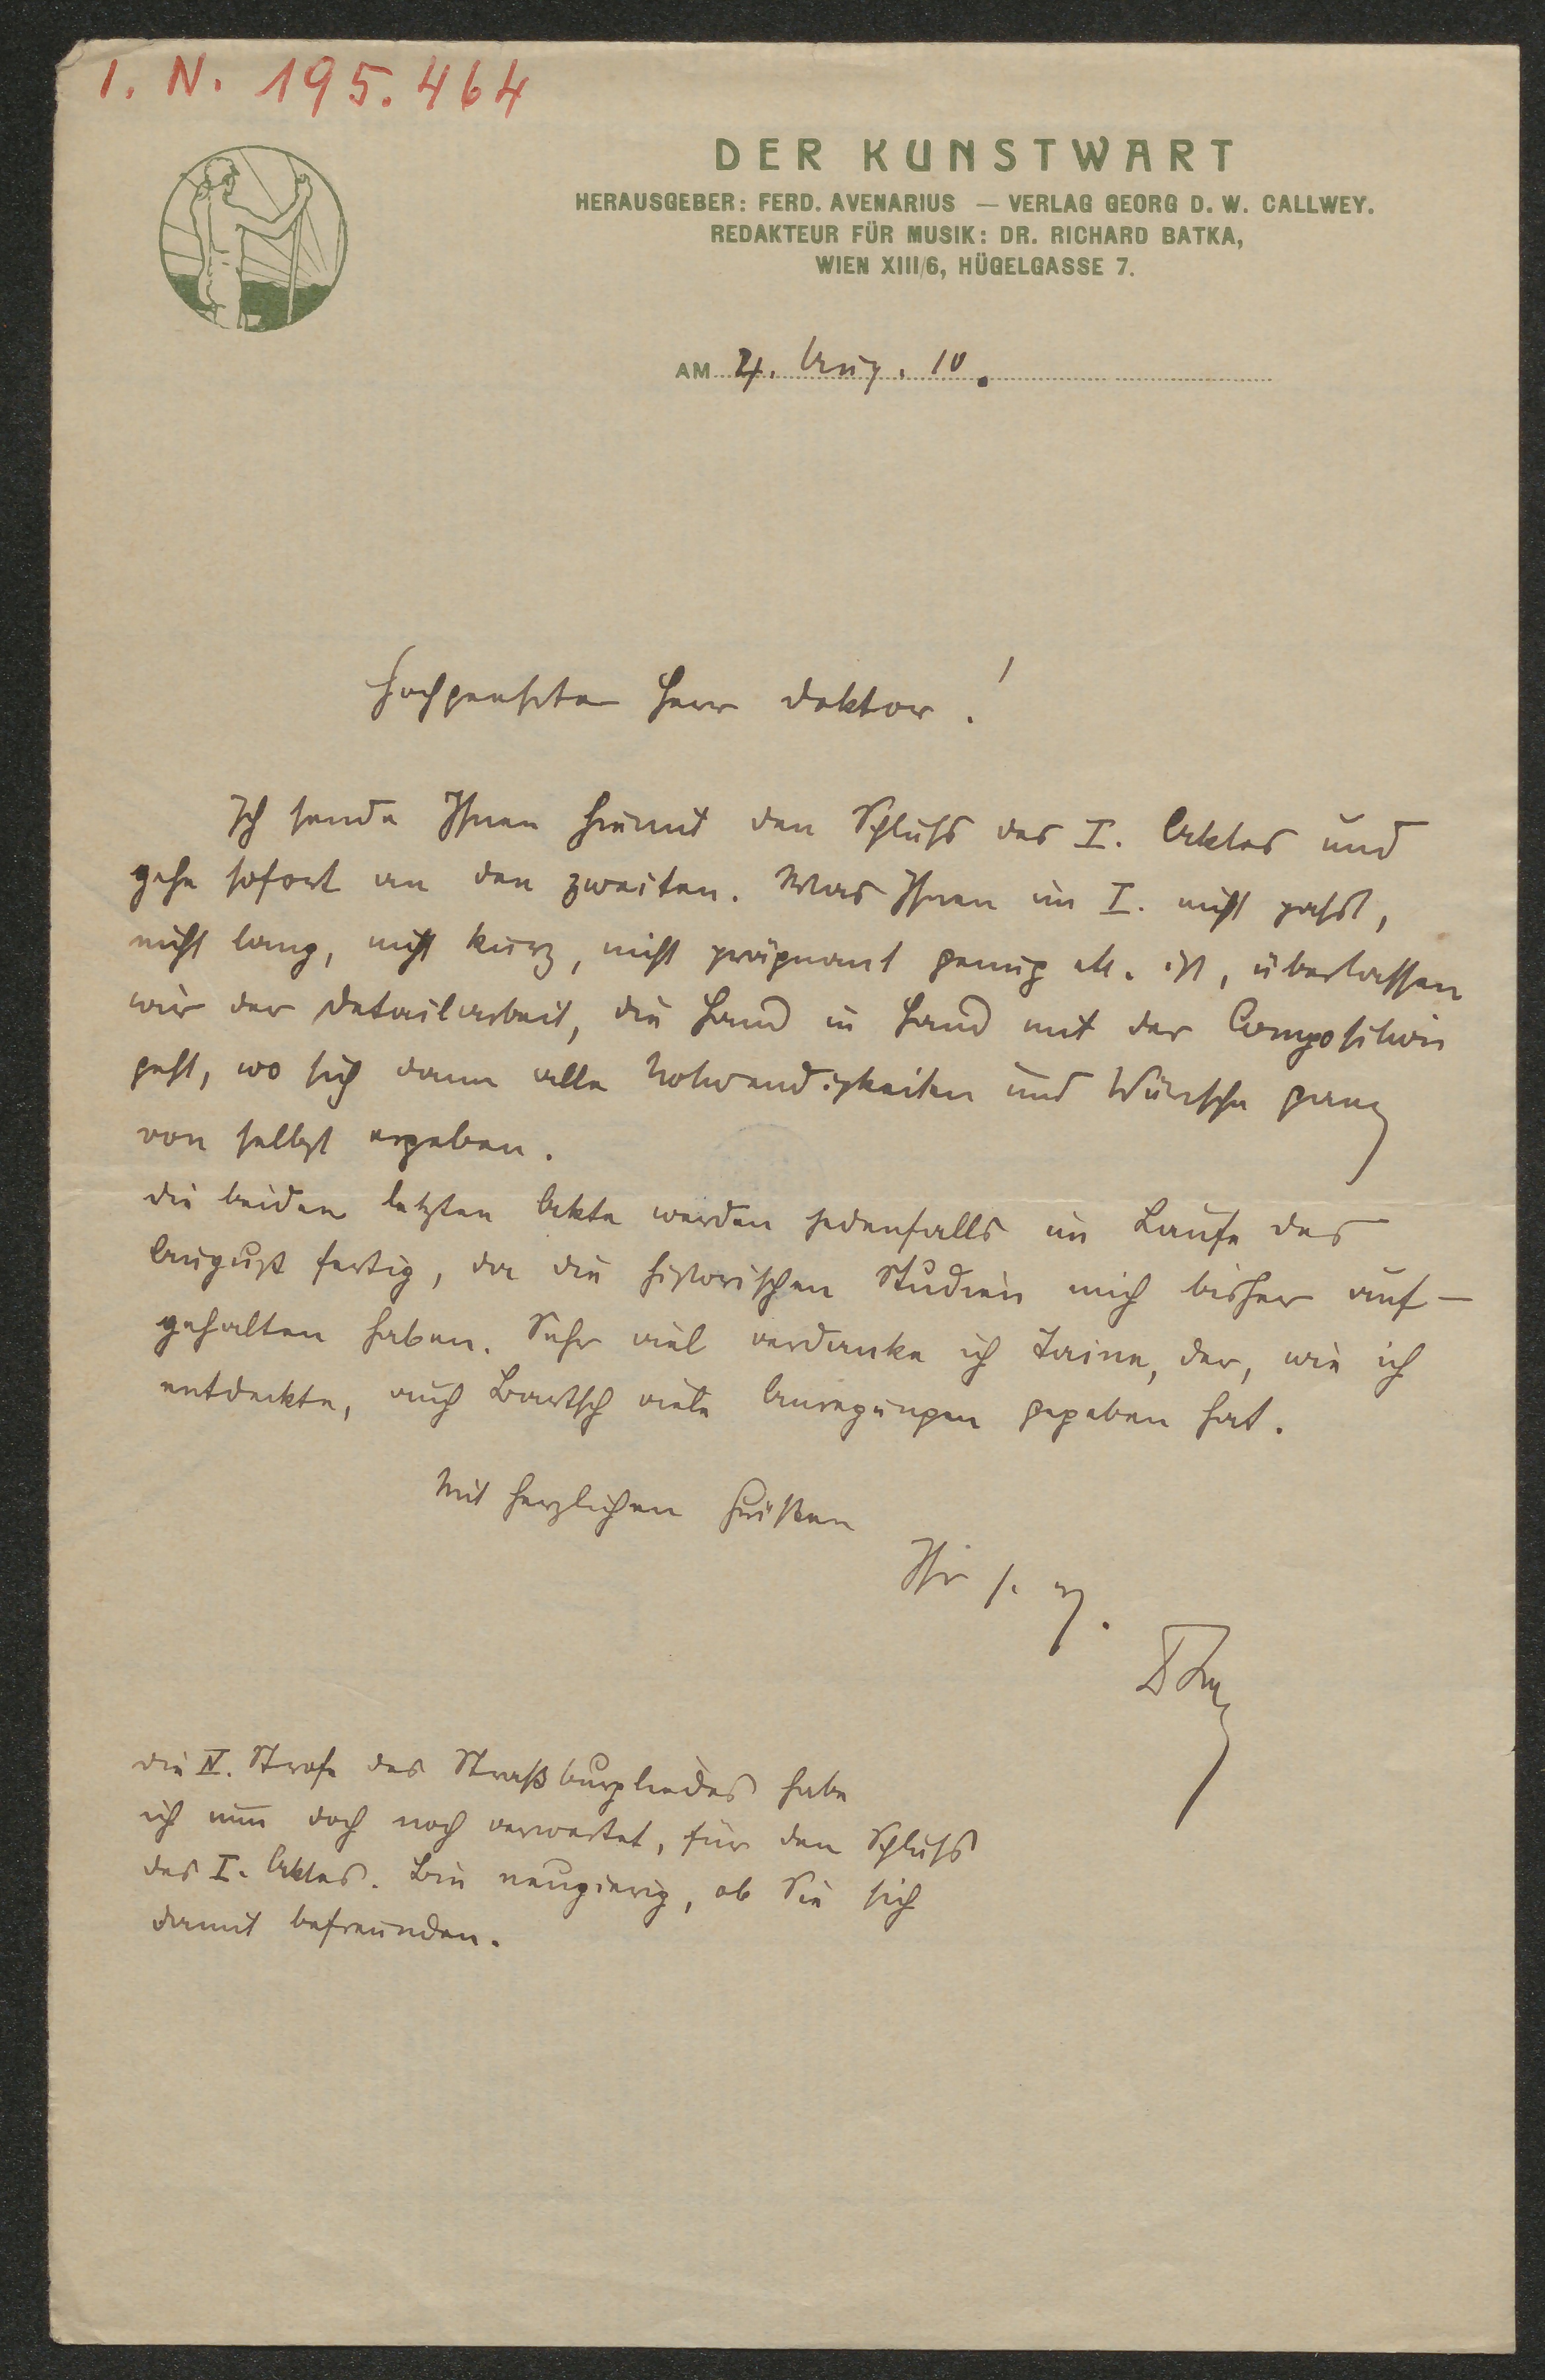 I. N. 195.464
DER KUNSTWART
HERAUSGEBER: FERD. AVENARIUS — VERLAG GEORG D. W. CALLWEY.
REDAKTEUR FÜR MUSIK: DR. RICHARD BATKA,
WIEN XIII/6, HÜGELGASSE 7.
AM 4. Aug. 10.
Hochgeehrter Herr Doktor!
Ich sende Ihnen hiemit den Schluß des I. Aktes und
gehe sofort an den zweiten. Was Ihnen im I. nicht paßt,
nicht lang, nicht kurz, nicht prägnant genug etc. ist, überlassen
wir der Detailarbeit, die Hand in Hand mit der Composition
geht, wo sich dann alle Notwendigkeiten und Wünsche ganz
von selbst ergeben.
Die beiden letzten Akte werden jedenfalls im Laufe des
August fertig, da die historischen Studien mich bisher auf-
gehalten haben. Sehr viel verdanke ich Taine, der, wie ich
entdeckte, auch Bartsch viele Anregungen gegeben hat.
Mit herzlichen Grüßen
Ihr s. erg.
Die IV. Strofe des Straßburgliedes habe
ich nun doch noch verwertet, für den Schluß
des I. Aktes. Bin neugierig, ob Sie sich
damit befreunden.